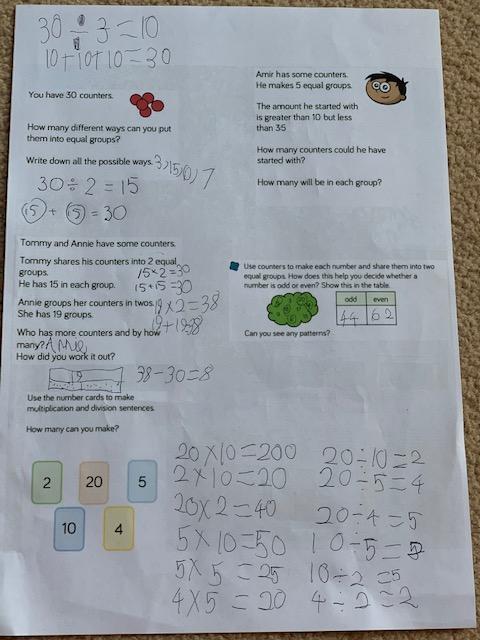 30 ÷ 3 = 10
10+10+10=30
You have 30 counters.
How many different ways can you put
them into equal groups?
Write down all the possible ways. 3,15,10,7
30÷2=15
15 + 15 = 30
Amir has some counters.
He makes 5 equal groups.
The amount he started with
is greater than 10 but less
than 35
How many counters could he have
started with?
How many will be in each group?
Tommy and Annie have some counters.
Tommy shares his counters into 2 equal
groups. 15×2=30
He has 15 in each group. 15+15=30
Annie groups her counters in twos. 19×2=38
She has 19 groups.
Who has more counters and by how
many? Annie
How did you work it out?
19
38-30=8
Use counters to make each number and share them into two
equal groups. How does this help you decide whether a
number is odd or even? Show this in the table.
odd even
44 62
Can you see any patterns?
Use the number cards to make
multiplication and division sentences.
How many can you make?
2 20 5
10 4
20×10=200
2×10=20
20×2=40
5×10=50
5×5=25
4×5=20
20÷10=2
20÷5=4
20÷4=5
10÷2=5
4÷2=2